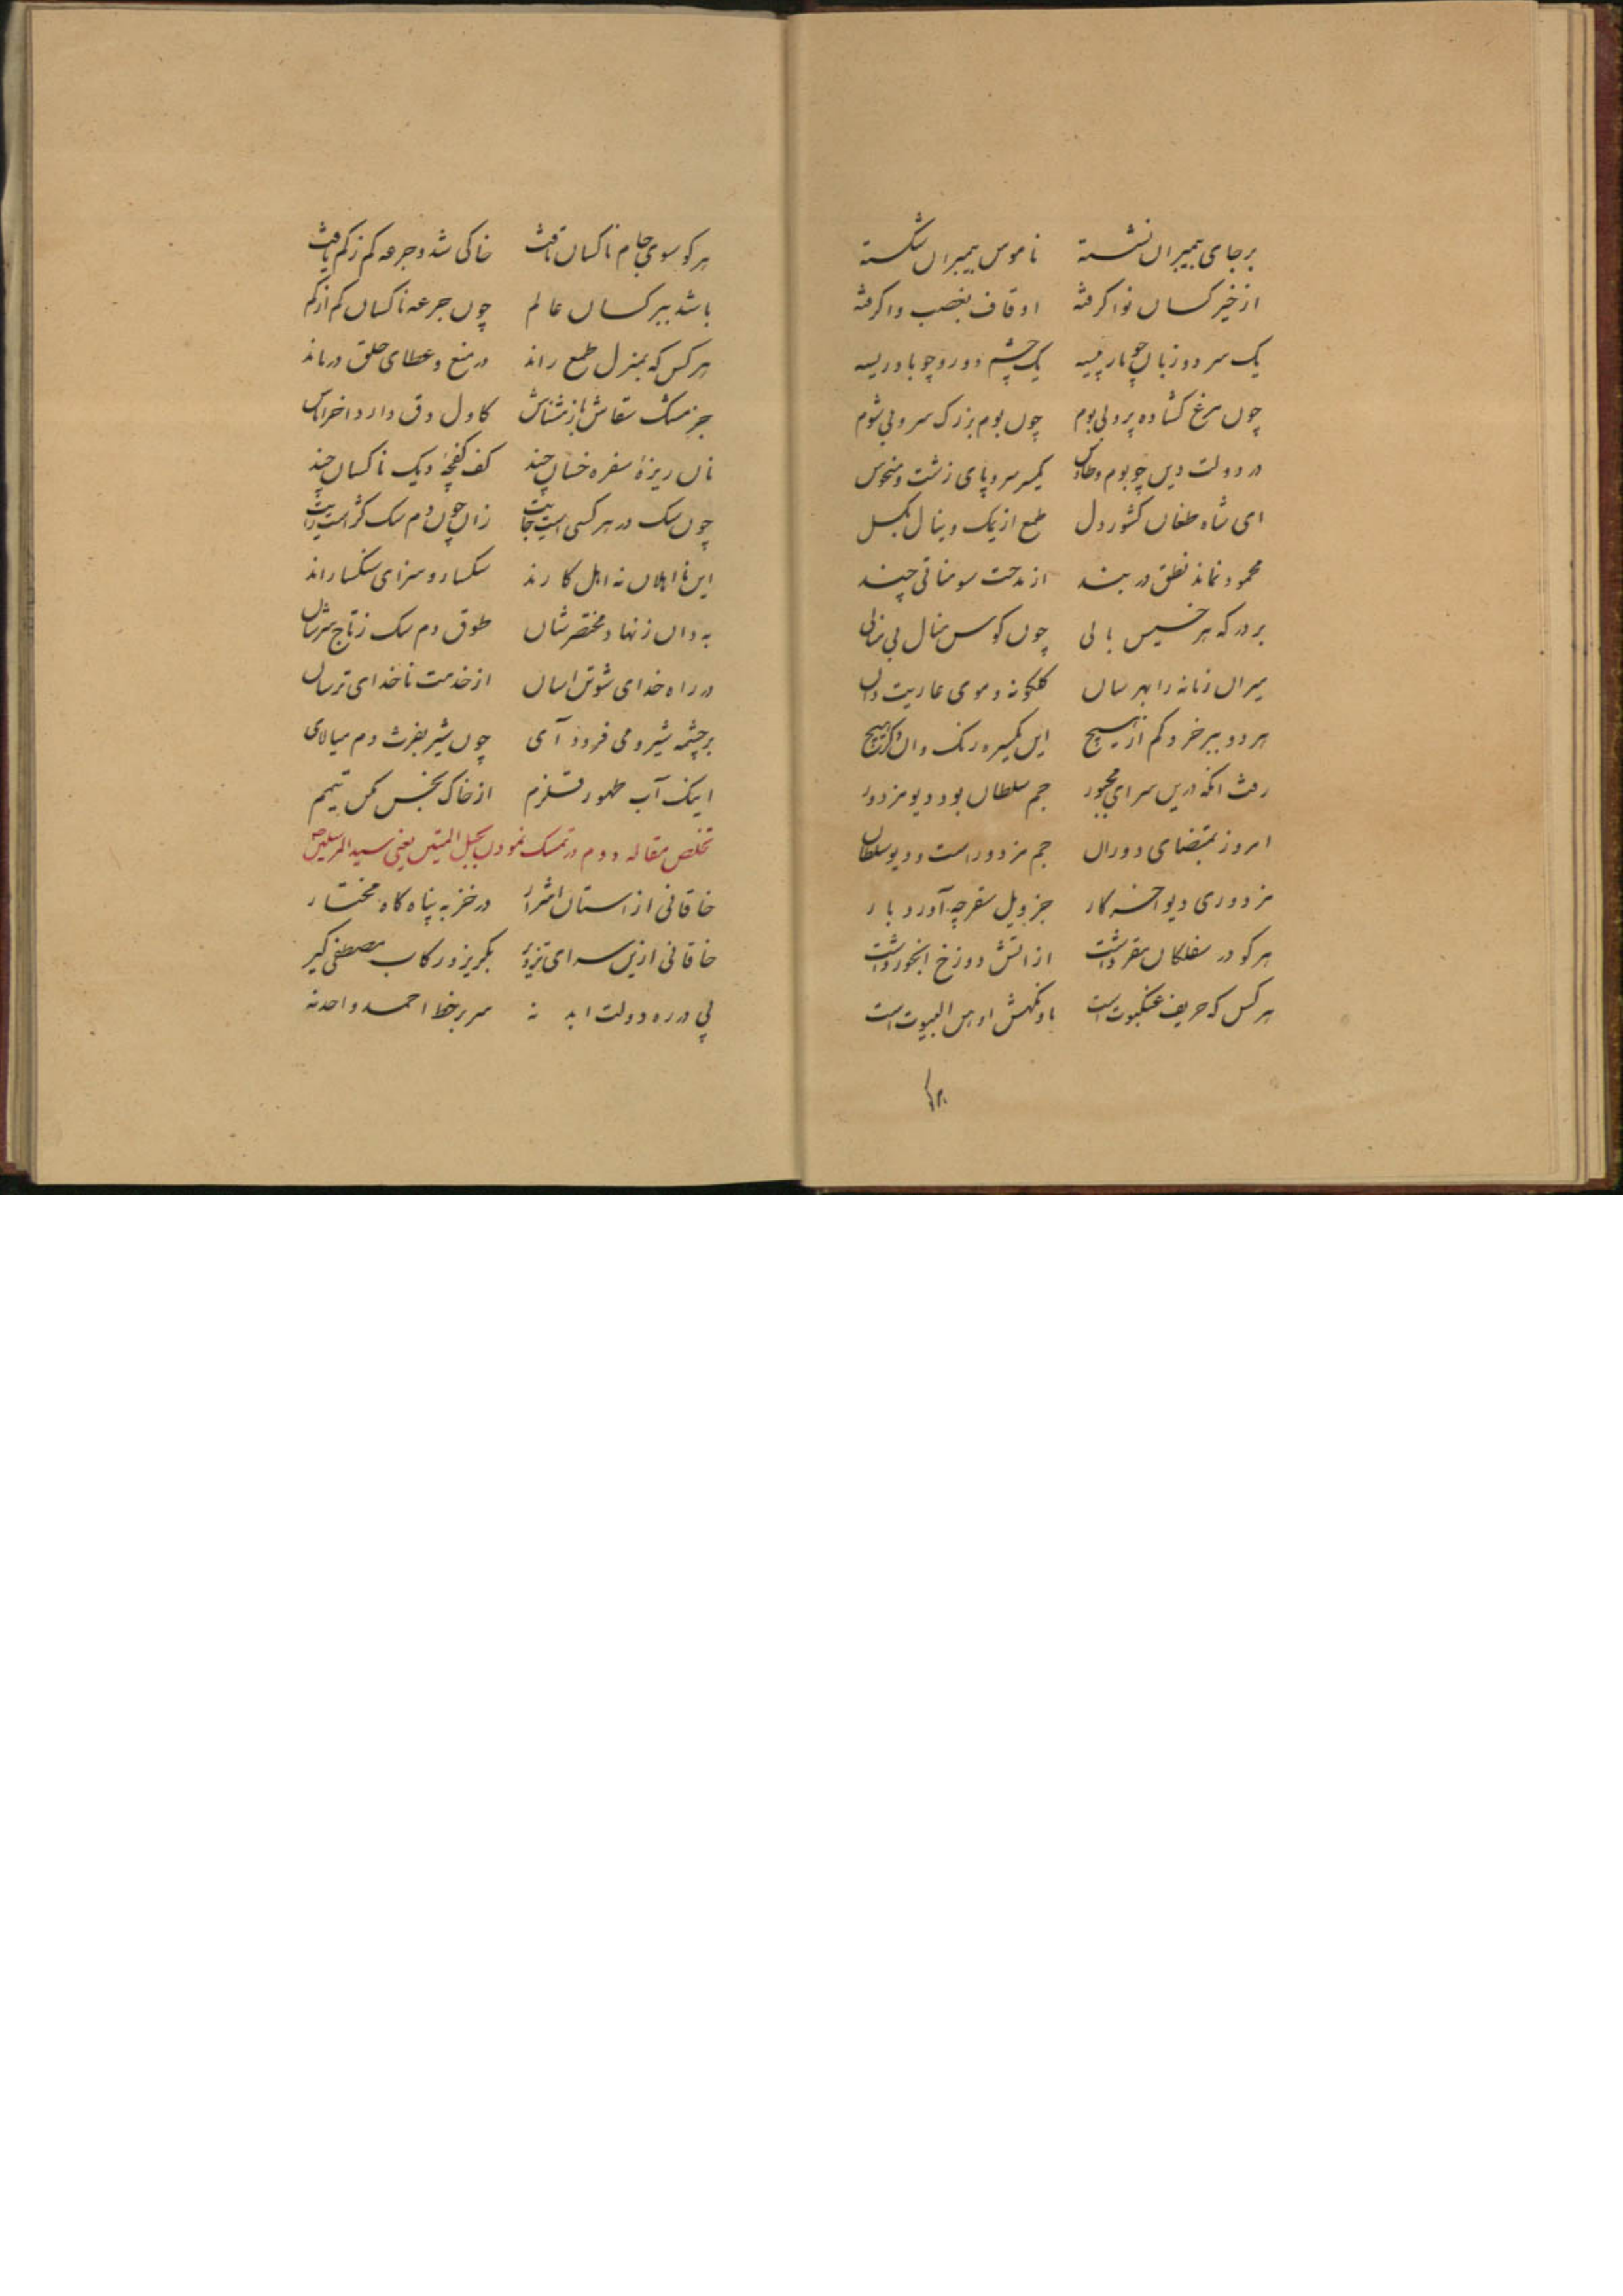 برجای پیمبران نشسته ناموس پیمبران شکسته
از خیر کسان نوا گرفته اوقاف بغصب وا گرفته
یک سر دو زبان چو مار پیسه یک چشم و دو رو چو بادریسه
چون مرغ گشاده پر ولی بوم چون بوم بزرگ سر ولی شوم
در دولت دین چو بوم و طاوس یکسر سر و پای زشت و منحوس
ای شاه طغان کشور دل طمع از یک و ینال بگسل
محمود نماند نطق در بند از مدحت سومناتی چند
بر درکه هر خسیس بالی چون کوس منال بی منالی
میران زمانه را بهر سان کلکونه و موی عاریت دان
هر دو ببر خرد کم از هیچ این یکسره رنک وان دکر پیچ
رفت آنکه درین سرای مهجور جم سلطان بود و دیو مزدور
امروز بمقتضای دوران جم مزدور است و دیو سلطان
مزدوری دیو اخر کار جز ویل سقر چه آورد بار
هر کو در سفلکان مقر داشت از اتش دوزخ ابخور داشت
هر کس که حریف عنکبوت است باد نکهش اوهن البیوت است
هر کو سوی جام ناکسان تافت خاکی شد و جرعه کم ز کم یافت
باشد ببر کسان عالم چون جرعه ناکسان کم از کم
هر کس که بمنزل طمع راند در منع و عطای خلق درماند
جز مشک سقاش باز مشناس کاول دق دارد اخر اماس
نان ریزۀ سفره خسان چند کف کفچۀ دیک ناکسان چند
چون سک در هر کسی است جایت زان چون دم سک کژ است رایت
این نا اهلان نه اهل کارند سکسار و سزای سنکسارند
به دان ز نهاد مختصرشان طوق دم سک ز تاج سرشان
در راه خدای شو تن اسان از خدمت ناخدای ترسان
بر چشمه شیر و می فرود آی چون شیر بفرث و دم میالای
اینک آب طهور قلزم از خاک نجس مکن تیمم
تخلص مقاله دوم در تمسک نمودن بحبل المتین یعنی سید المرسلین ص
خاقانی از استان اشرار در خز به پناه کاه مختار
خاقانی ازین سرای تزویر بگریز و رکاب مصطفی گیر
پی در ره دولت ابد نه سر بر خط احمد و احد نه